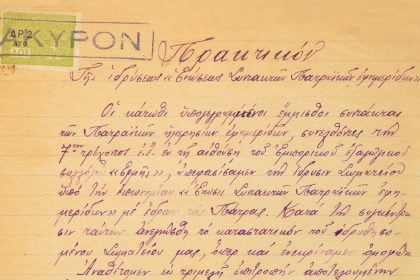 ΔΡ. 2
ΔΥΟ
ΑΚΥΡΟΝ
Πρακτικόν
Της ιδρύσεως «Ενώσεως Συντακτών Πατραϊκών εφημερίδων»
Οι κάτωθι υπογεγραμμένοι έμμισθοι συντάκται
των Πατραϊκών ημερησίων εφημερίδων, συνελθόντες την
7ην τρέχοντος έ.έ. εν τη αιθούση του Εμπορικού
συλλόγου «Ερμής», απεφασίσαμεν την ίδρυσιν Σωματείου
υπό την επωνυμίαν «Ένωσις Συντακτών Πατραϊκών εφη-
μερίδων» με έδραν τας Πάτρας. Κατά την συνέλευ-
σιν ταύτην ανεγνώσθη το καταστατικόν του ιδρυθησο-
μένου Σωματείου μας, όπερ και ενεκρίναμεν ομοφώ
Αναθέτομεν εις τριμελή επιτροπήν αποτελουμένην